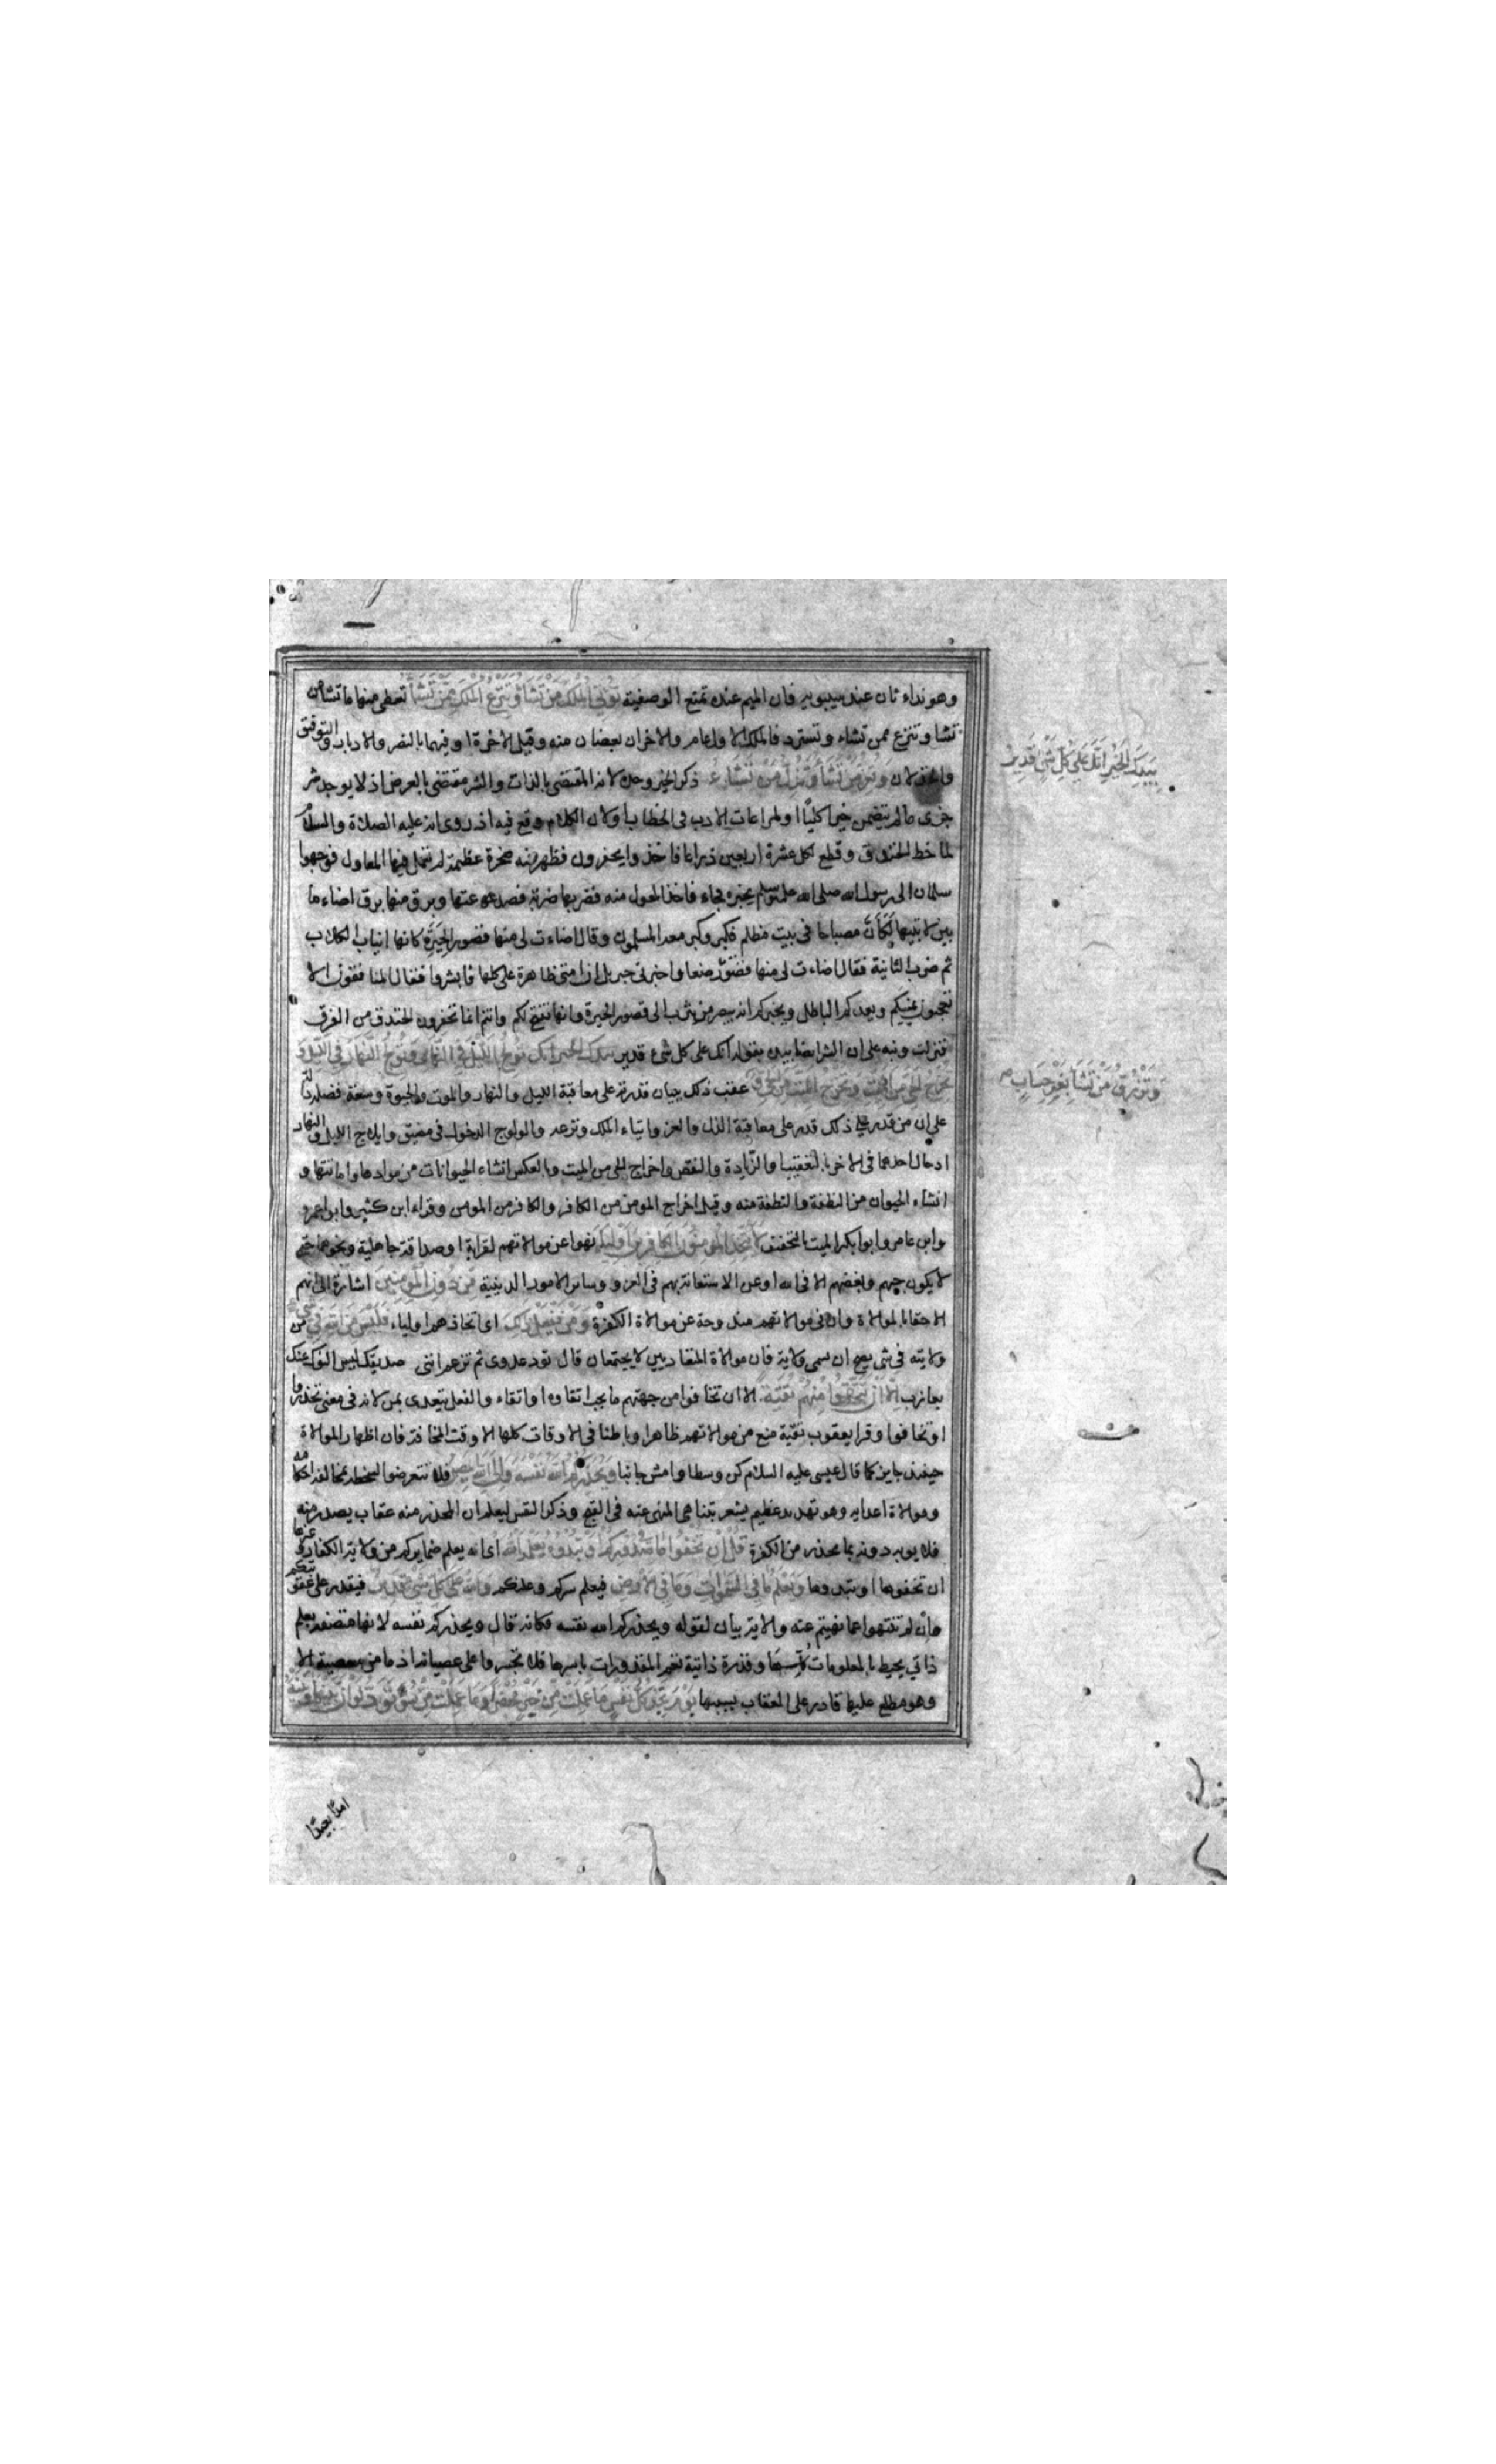 وهو نداء ثان عند سيبويه فان الميم عنده تمنع الوصفية تُؤْتِي الْمُلْكَ مَنْ تَشَاءُ وَتَنْزِعُ الْمُلْكَ مِمَّنْ تَشَاءُ تعطى منها ما تشا من
تشا وتنزع ممن تشاء وتسترد فالملك الاول عام والاخران بعضان منه وقيل الاخرة او فيهما بالنصر والادبار والتوفيق
والخذلان وَتُعِزُّ مَنْ تَشَاءُ وَتُذِلُّ مَنْ تَشَاءُ ذكر الخير وحده لانه المقتضى بالذات والشر مقتضى بالعرض اذ لا يوجد شر
جزى ما لم يتضمن خيرا كليًا او لمراعات الادب فى الخطاب او لان الكلام وقع فيه اذ روى انه عليه الصلاة والسلام
لما خط الخندق وقطع لكل عشرة اربعين ذراعا فاخذوا يحفرون فظهر منه صخرة عظيمة لم تعمل فيها المعاول فوجهوا
سلمان الى رسول الله صلى الله عليه وسلم يخبره فجاء فاخذ المعول منه فضربها ضربة فصدعتها وبرق منها برق اضاء ما
بين لابتيها لَكَأَنَّ مصباحا فى بيت مظلم فكبر وكبر معه المسلمون وقال اضاءت لى منها قصور الحِيَرة كانها انياب الكلاب
ثم ضرب الثانية فقال اضاءت لى منها قصور صنعا واخبرنى جبريل ان امتى ظاهرة على كلها فابشروا فقال المنافقون الا
تعجبون يمنيكم ويعدكم الباطل ويخبركم انه يبصر من يثرب الى قصور الحيرة وانها تفتح لكم وانتم انما تحفرون الخندق من الفرق
فنزلت ونبه على ان الشر ايضا بيده بقوله انك على كل شئ قدير بيدك الخير انك تُولِجُ اللَّيْلَ فِي النَّهَارِ وَتُولِجُ النَّهَارَ فِي اللَّيْلِ وَ
تُخْرِجُ الْحَيَّ مِنَ الْمَيِّتِ وَتُخْرِجُ الْمَيِّتَ مِنَ الْحَيِّ عقب ذلك ببيان قدرته على معاقبة الليل والنهار والموت والحيوة وسعة فضله دلالة
على ان من قدر على ذلك قدر على معاقبة الذل والعز وايتاء الملك ونزعه والولوج الدخول فى مضيق وايلاج الليل والنهار
ادخال احدهما فى الاخر بالتعقيب والزيادة والنقص واخراج الحى من الميت وبالعكس انشاء الحيوانات من موادها واماتتها و
انشاء الحيوان من النطفة والنطفة منه وقيل اخراج المومن من الكافر والكافر من المومن وقراء ابن كثير وابو عمرو
وابن عامر وابوا بكر الميت بالتخفيف لَا يَتَّخِذِ الْمُؤْمِنُونَ الْكَافِرِينَ أَوْلِيَاءَ نهوا عن موالاتهم لقرابة او صداقة جاهلية ونحوهما حتى
لا يكون حبهم وبغضهم الا فى الله او عن الاستعانة بهم فى الغزو وسائر الامور الدينية مِنْ دُونِ الْمُؤْمِنِينَ اشارة الى انهم
الاحقا بالموالاة وان فى موالاتهم مندوحة عن موالاة الكفرة وَمَنْ يَفْعَلْ ذَلِكَ اى اتخاذهم اولياء فَلَيْسَ مِنَ اللَّهِ فِي شَيْءٍ من
ولايته فى شى يصح ان يسمى ولاية فان موالاة المتعاديين لا يجتمعان قال تود عدوى ثم تزعم اننى صديقك ليس النوك عنك
بعازب إِلَّا أَنْ تَتَّقُوا مِنْهُمْ تُقَاةً الا ان تخافوا من جهتهم ما يجب اتقاوه او اتقاء والفعل يتعدى بمن لانه فى معنى تحذروا
او تخافوا وقرا يعقوب تقية منع من موالاتهم ظاهرا وباطنا فى الاوقات كلها الا وقت المخافة فان اظهار الموالاة
حينئذ جايز كما قال عيسى عليه السلام كن وسطا وامش جانبا وَيُحَذِّرُكُمُ اللَّهُ نَفْسَهُ وَإِلَى اللَّهِ الْمَصِيرُ فلا تتعرضوا لسخطه بمخالفة احكامه
وموالاة اعدايه وهو تهديد عظيم يشعر بتناهى المنهى عنه فى القبح وذكر النفس ليعلم ان المحذر منه عقاب يصدر منه
فلا يوبه دونه بما يحذر من الكفرة قُلْ إِنْ تُخْفُوا مَا فِي صُدُورِكُمْ أَوْ تُبْدُوهُ يَعْلَمْهُ اللَّهُ اى انه يعلم ضمايركم من ولاية الكفار وغيرها
ان تخفوها او تبدوها وَيَعْلَمُ مَا فِي السَّمَوَاتِ وَمَا فِي الْأَرْضِ فيعلم سركم وعلنكم وَاللَّهُ عَلَى كُلِّ شَيْءٍ قَدِيرٌ فيقدر على عقوبتكم
مان لم تنتهوا عما نهيتم عنه والاية بيان لقوله ويحذركم الله نفسه فكانه قال ويحذركم نفسه لانها متصفة بعلم
ذاتي يحيط بالمعلومات كلها وقدرة ذاتية تعم المقدورات باسرها فلا تجسروا على عصيانه اذ ما من معصية الا
وهو مطلع عليها قادر على العقاب بسببها يَوْمَ تَجِدُ كُلُّ نَفْسٍ مَا عَمِلَتْ مِنْ خَيْرٍ مُحْضَرًا وَمَا عَمِلَتْ مِنْ سُوءٍ تَوَدُّ لَوْ أَنَّ بَيْنَهَا وَبَيْنَهُ
امدًا بعيدًا
بِيَدِكَ الْخَيْرُ إِنَّكَ عَلَى كُلِّ شَيْءٍ قَدِيرٌ
وَتَرْزُقُ مَنْ تَشَاءُ بِغَيْرِ حِسَابٍ